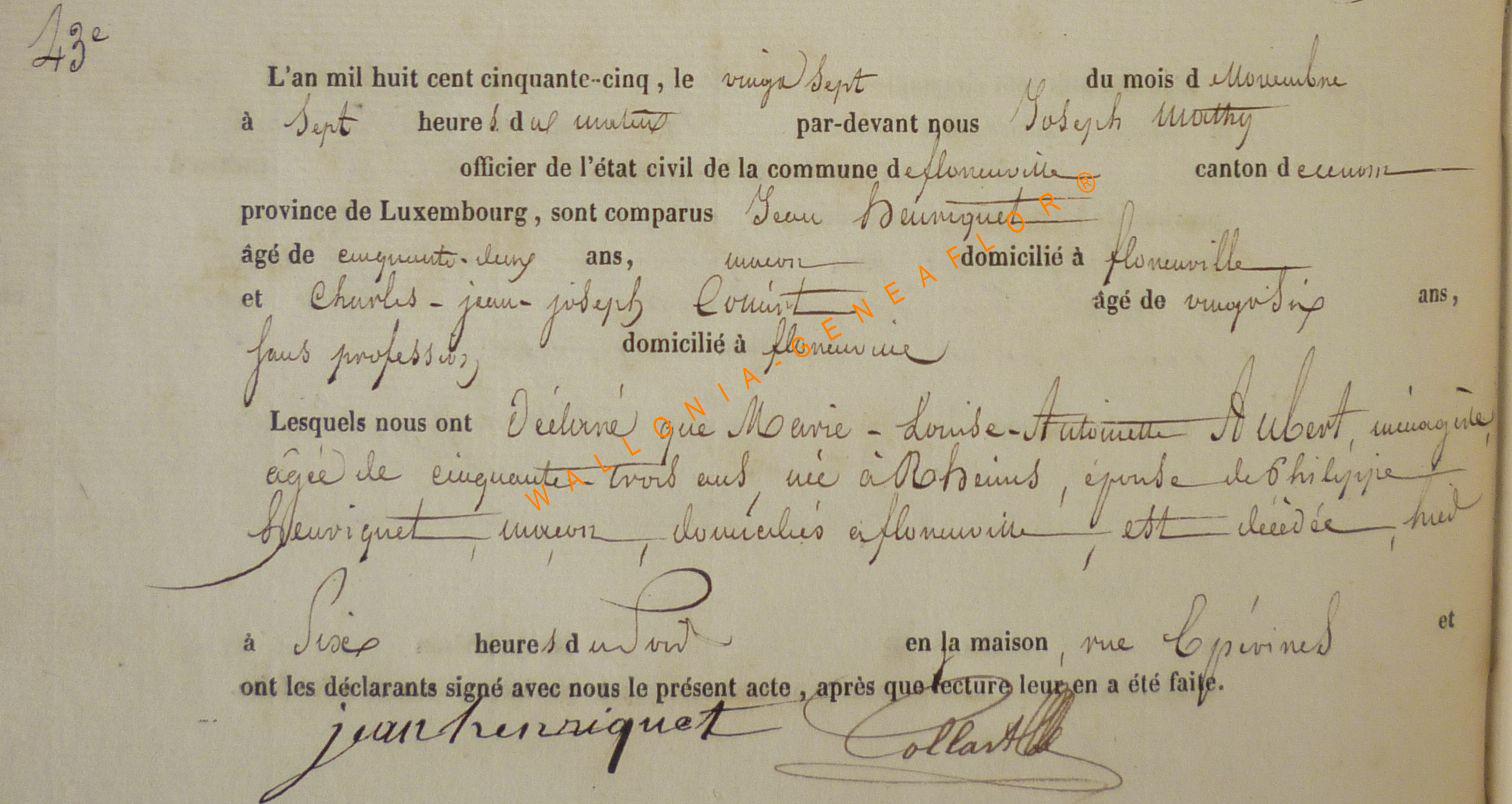 43e
L'an mil huit cent cinquante-cinq, le vingt sept du mois d e Novembre
à Sept heures du matin par-devant nous Joseph Mathy
officier de l'état civil de la commune de florenville canton de
province de Luxembourg, sont comparus Jean Henriquet
âgé de cinquante-deux ans, maçon domicilié à florenville
et Charles-jean-joseph âgé de vingt Six ans,
Sans profession, domicilié à florenville
Lesquels nous ont Déclaré que Marie-Louise-Antoinette Aubert, ménagère,
âgée de cinquante-trois ans, née à Rheims, épouse de Philippe
Henriquet, maçon, domiciliés à florenville, est décédée, hier
à Six heures du Soir en la maison, rue Epérines et
ont les déclarants signé avec nous le présent acte, après que lecture leur en a été faite.
jean henriquet Collart
WALLONIA-GENEAFLOR ®